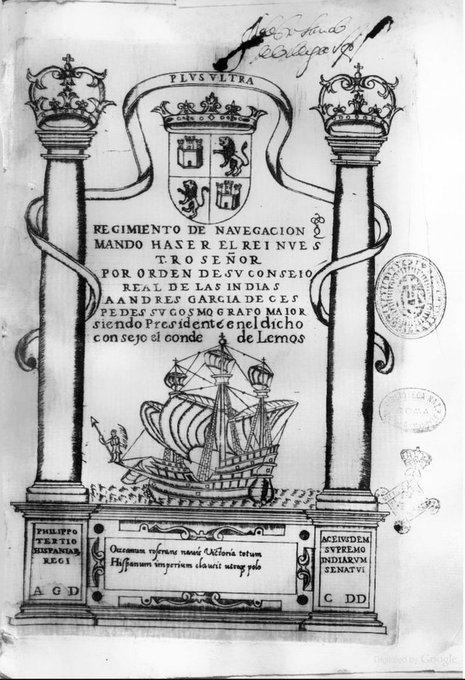 PLVS VLTRA
REGIMIENTO DE NAVEGACION
MANDO HASER EL REI NVES
TRO SEÑOR
POR ORDEN DE SV CONSEIO
REAL DE LAS INDIAS
A ANDRES GARCIA DE CES
PEDES SV COSMOGRAFO MAIOR
siendo Presidente en el dicho
consejo el conde de Lemos
PHILIPPO
TERTIO
HISPANIAR̄
REGI
A G D
Oceanum reserans nauis Victoria totum
Hispanum imperium clausit utroq̨ polo
AC EIVSDEM
SVPREMO
INDIARVM
SENATVI
C DD
ROMA
Digitized by Google